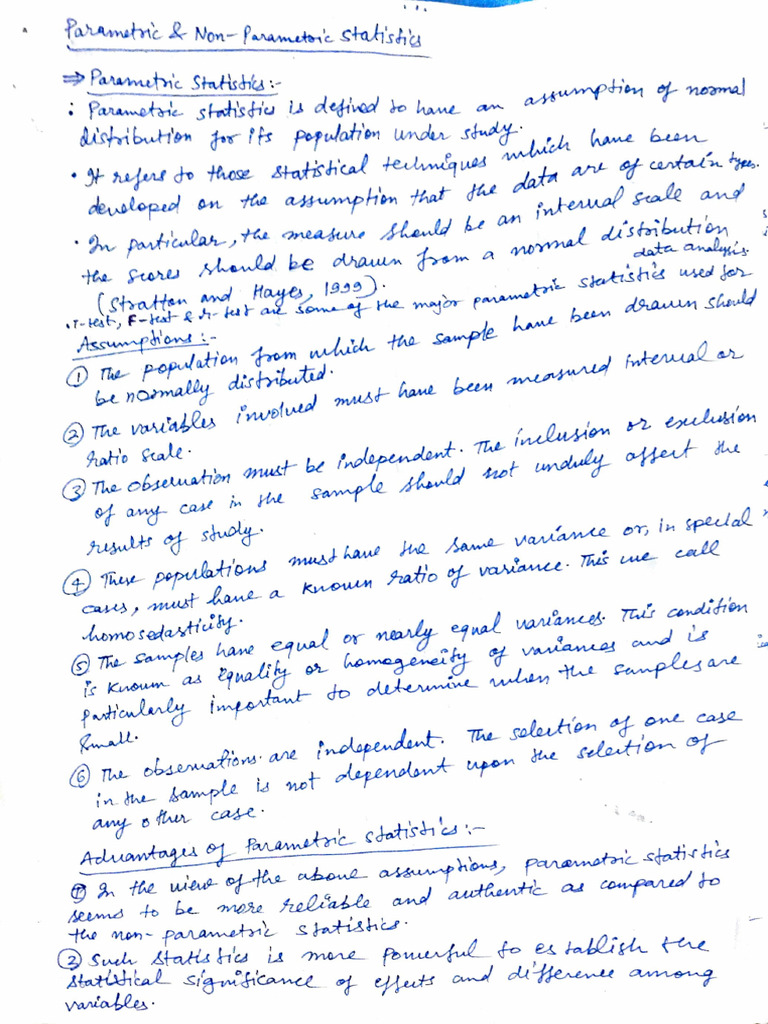 Parametric & Non-Parametric Statistics
⇒ Parametric Statistics:-
: Parametric statistics is defined to have an assumption of normal
distribution for its population under study.
• It refers to those statistical techniques which have been
developed on the assumption that the data are of certain types.
• In particular, the measure should be an interval scale and
the scores should be drawn from a normal distribution
(Stratton and Hayes, 1999).
• T-test, F-test & r-test are some of the major parametric statistics used for data analysis.
Assumptions:-
① The population from which the sample have been drawn should
be normally distributed.
② The variables involved must have been measured interval or
ratio scale.
③ The observation must be independent. The inclusion or exclusion
of any case in the sample should not unduly affect the
results of study.
④ These populations must have the same variance or, in special
cases, must have a known ratio of variance. This we call
homosedasticity.
⑤ The samples have equal or nearly equal variances. This condition
is known as equality or homogeneity of variances and is
particularly important to determine when the samples are
small.
⑥ The observations are independent. The selection of one case
in the sample is not dependent upon the selection of
any other case.
Advantages of Parametric Statistics:-
① In the view of the above assumptions, parametric statistics
seems to be more reliable and authentic as compared to
the non-parametric statistics.
② Such statistics is more powerful to establish the
statistical significance of effects and difference among
variables.